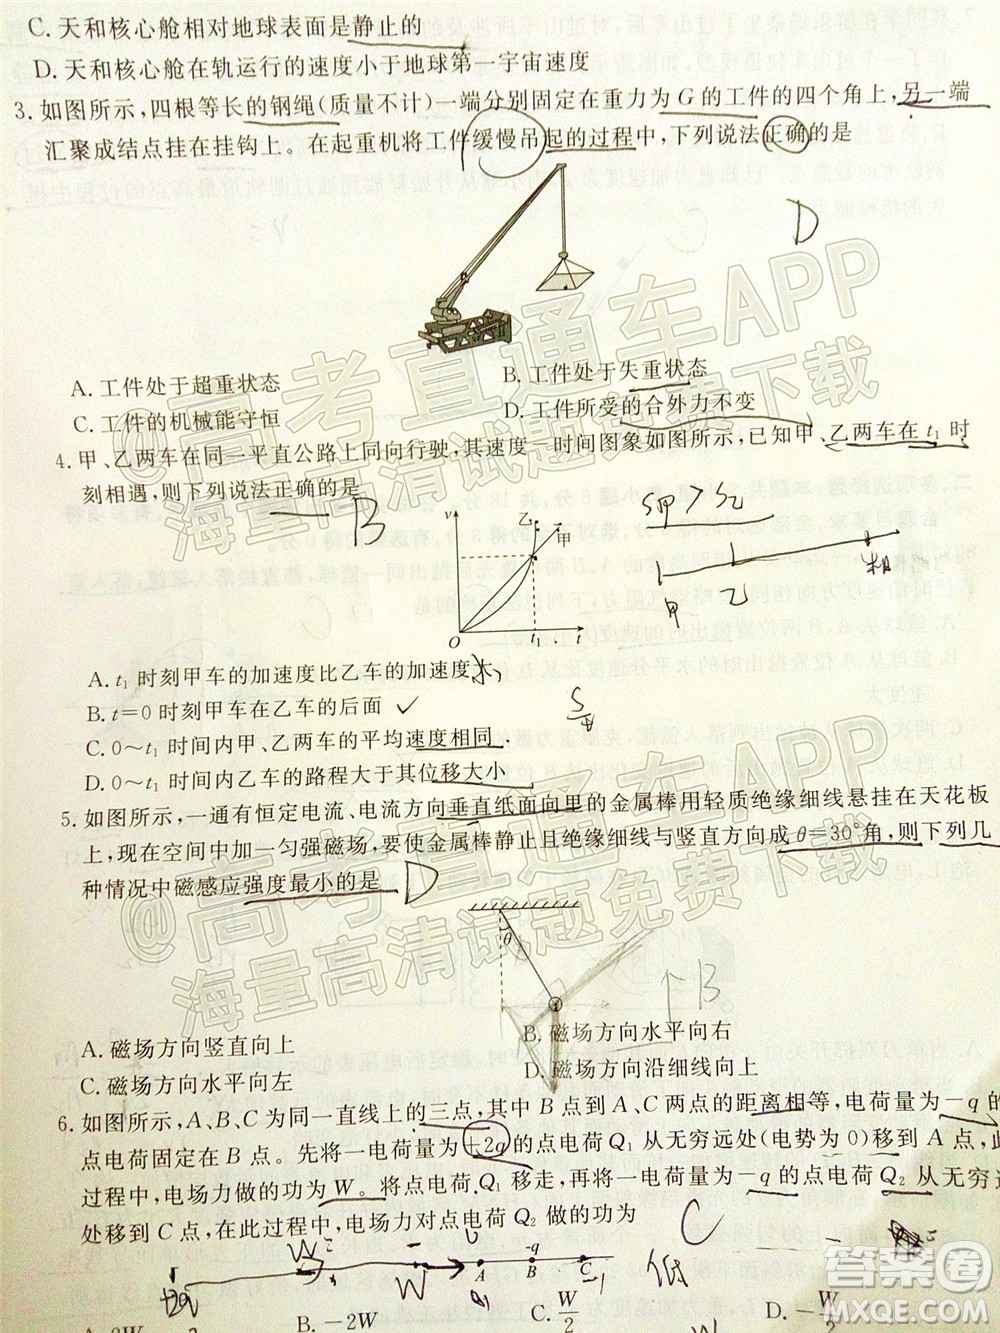 C. 天和核心舱相对地球表面是静止的
D. 天和核心舱在轨运行的速度小于地球第一宇宙速度
3. 如图所示,四根等长的钢绳(质量不计)一端分别固定在重力为G的工件的四个角上,另一端
汇聚成结点挂在挂钩上。在起重机将工件缓慢吊起的过程中,下列说法正确的是
D
A. 工件处于超重状态
B. 工件处于失重状态
C. 工件的机械能守恒
D. 工件所受的合外力不变
4. 甲、乙两车在同一平直公路上同向行驶,其速度—时间图象如图所示,已知甲、乙两车在t₁时
刻相遇,则下列说法正确的是
B
S甲>S乙
v
乙
甲
O
t₁
t
甲 乙 相
A. t₁时刻甲车的加速度比乙车的加速度大
B. t=0时刻甲车在乙车的后面
C. 0~t₁时间内甲、乙两车的平均速度相同
D. 0~t₁时间内乙车的路程大于其位移大小
5. 如图所示,一通有恒定电流、电流方向垂直纸面向里的金属棒用轻质绝缘细线悬挂在天花板
上,现在空间中加一匀强磁场,要使金属棒静止且绝缘细线与竖直方向成θ=30°角,则下列几
种情况中磁感应强度最小的是
D
θ
↑B
A. 磁场方向竖直向上
B. 磁场方向水平向右
C. 磁场方向水平向左
D. 磁场方向沿细线向上
6. 如图所示,A、B、C为同一直线上的三点,其中B点到A、C两点的距离相等,电荷量为-q的
点电荷固定在B点。先将一电荷量为+2q的点电荷Q₁从无穷远处(电势为0)移到A点,此
过程中,电场力做的功为W。将点电荷Q₁移走,再将一电荷量为-q的点电荷Q₂从无穷远
处移到C点,在此过程中,电场力对点电荷Q₂做的功为
C
-q
A B C
低
B. -2W
C. W/2
D. -W/2
@高考直通车APP
海量高清试题免费下载
@高考直通车APP
海量高清试题免费下载
答案圈
MXQE.COM